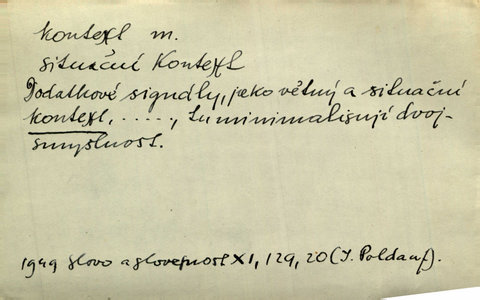 kontext m.
situační kontext
Dodatkové signály, jako větný a situační
kontext, ....., tu minimalisují dvoj-
smyslnost.
1949 Slovo a slovesnost XI, 129, 20 (I. Poldauf).